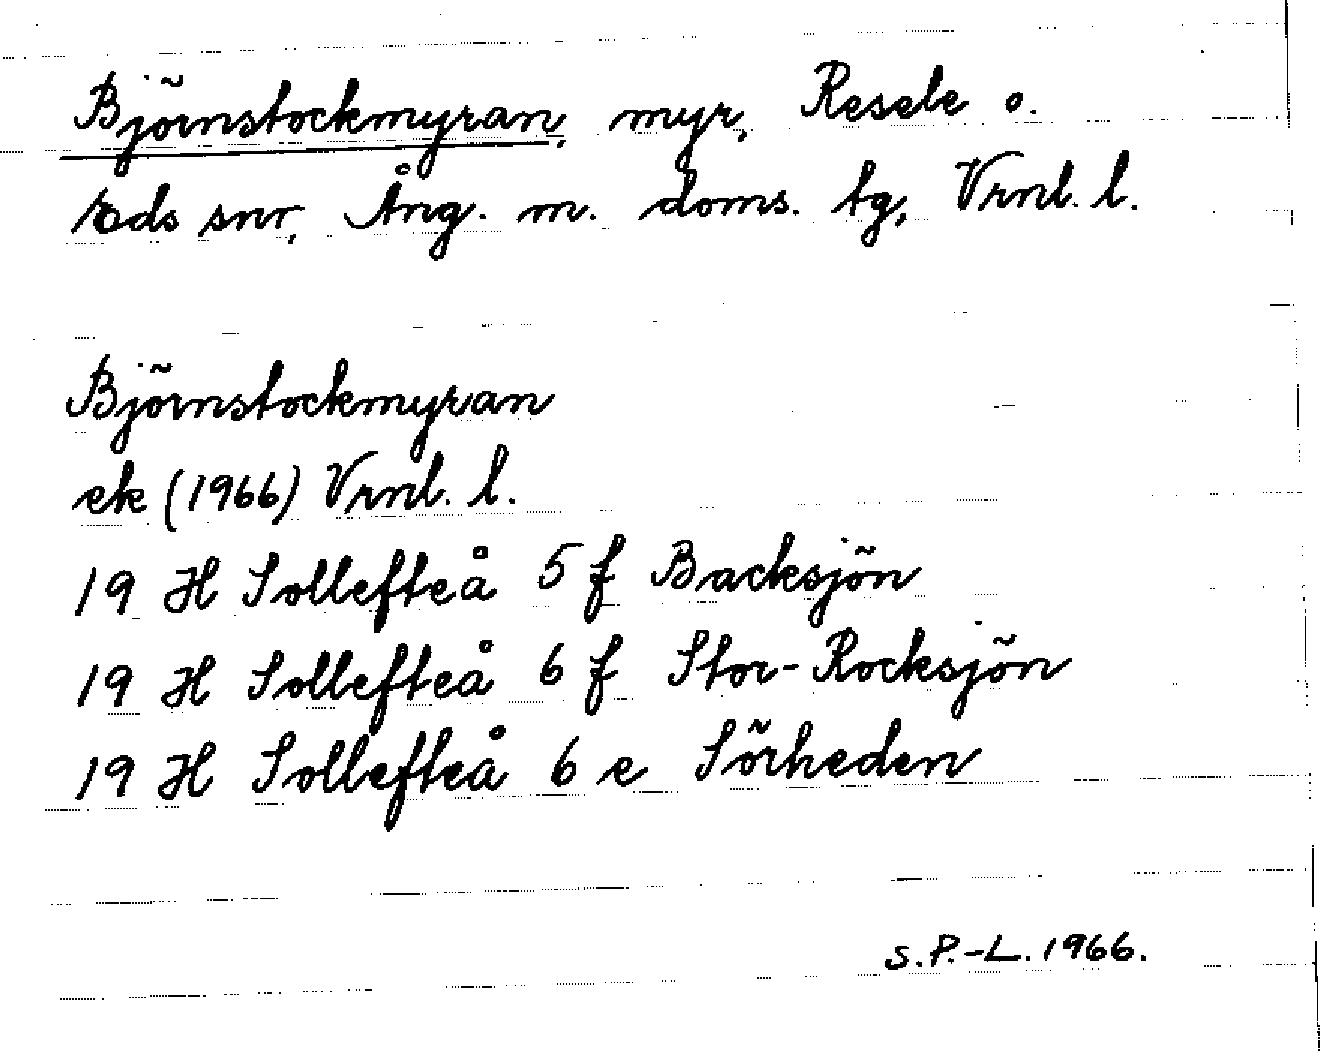 Björnstockmyran, myr, Resele o.
Eds snr, Ång. m. doms. tg, Vrnl. l.
Björnstockmyran
ek (1966) Vrnl. l.
19 H Sollefteå 5 f Backsjön
19 H Sollefteå 6 f Stor-Rocksjön
19 H Sollefteå 6 e Sörheden
S.P.-L. 1966.